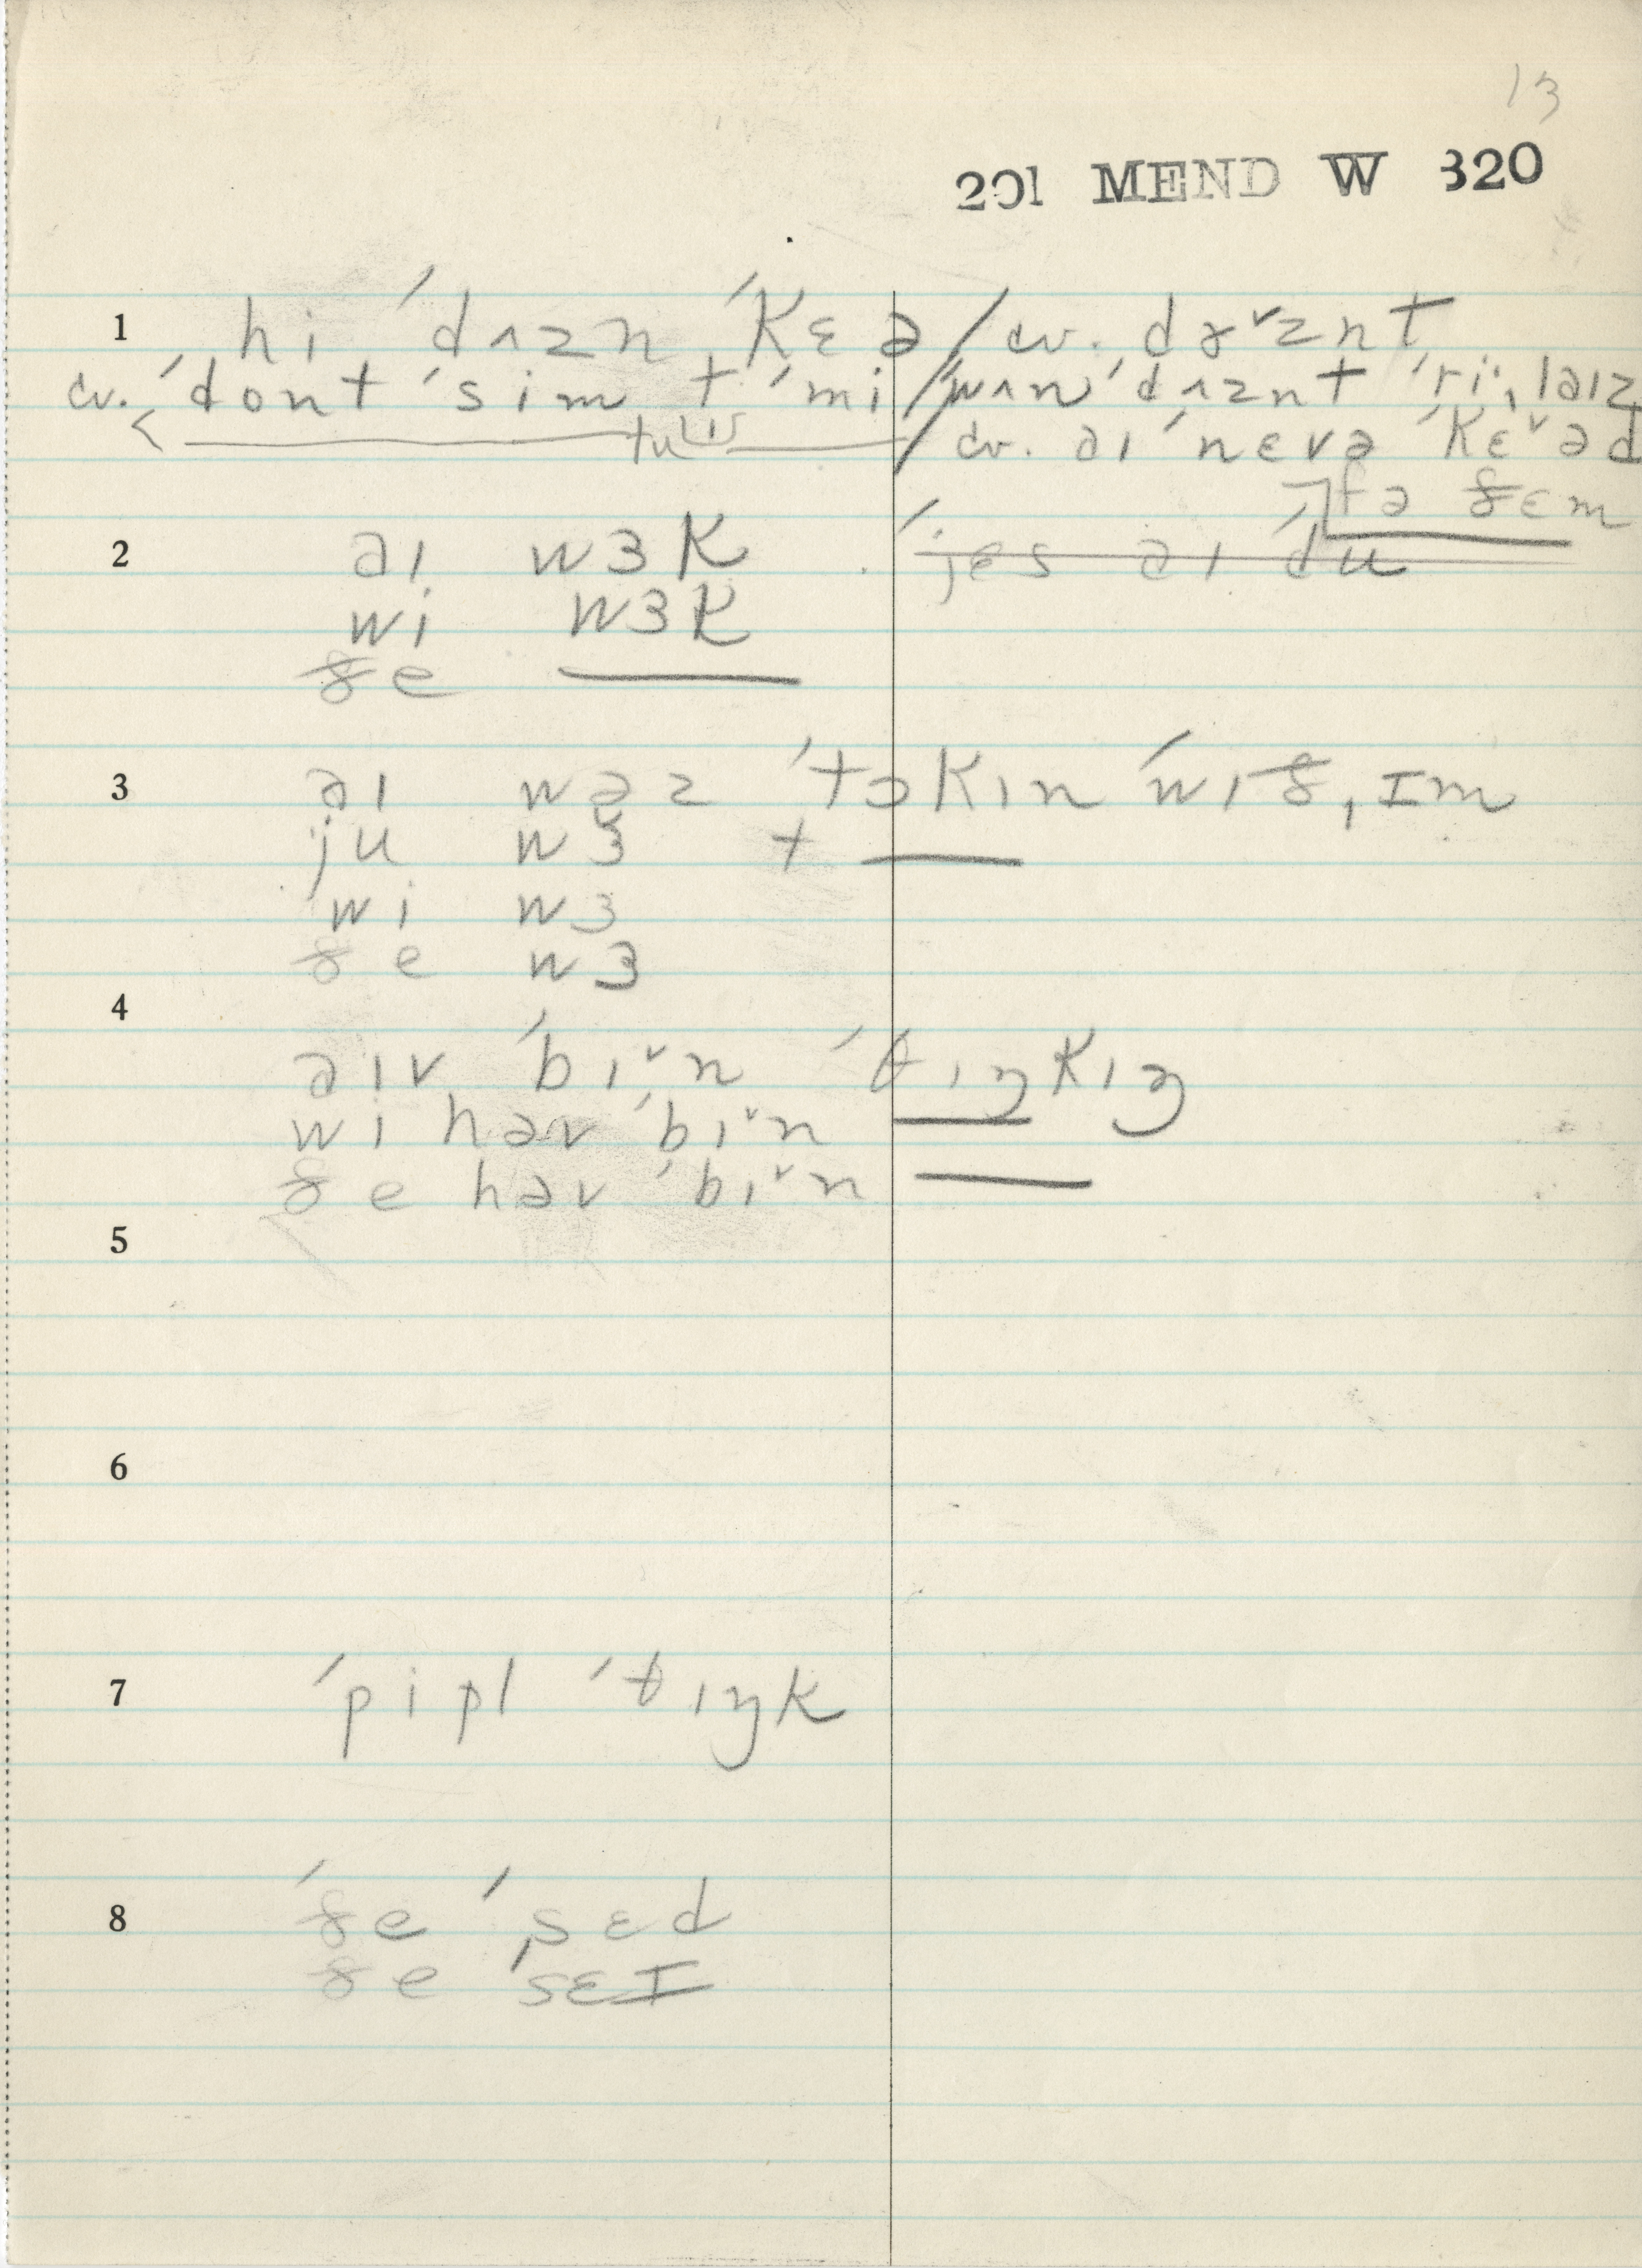 13
201 MEND W 820
1 hi ˈdʌzn ˈkɛə / cv. dɤ˅znt
cv. ˈdont ˈsim t ˈmi / ˈwʌn ˈdʌznt ˈriˑˌləɪz
< tu / cv. əɪ ˈnɛvə ˈkɛ˅əd
fə ðɛm
2 əɪ wɜk ˈjɛs əɪ ˈdu
wi wɜk
ðe
3 əɪ wəz ˈtɔkɪn ˈwɪðˌɪm
ju wɜ t
wi wɜ
ðe wɜ
4
əɪv ˈbɪ˅n ˈθɪŋkɪŋ
wi həv ˈbɪ˅n
ðe həv ˈbɪ˅n
5
6
7 ˈpipl ˈθɪŋk
8 ˈðe ˈsɛd
ðe ˈsɛɪ